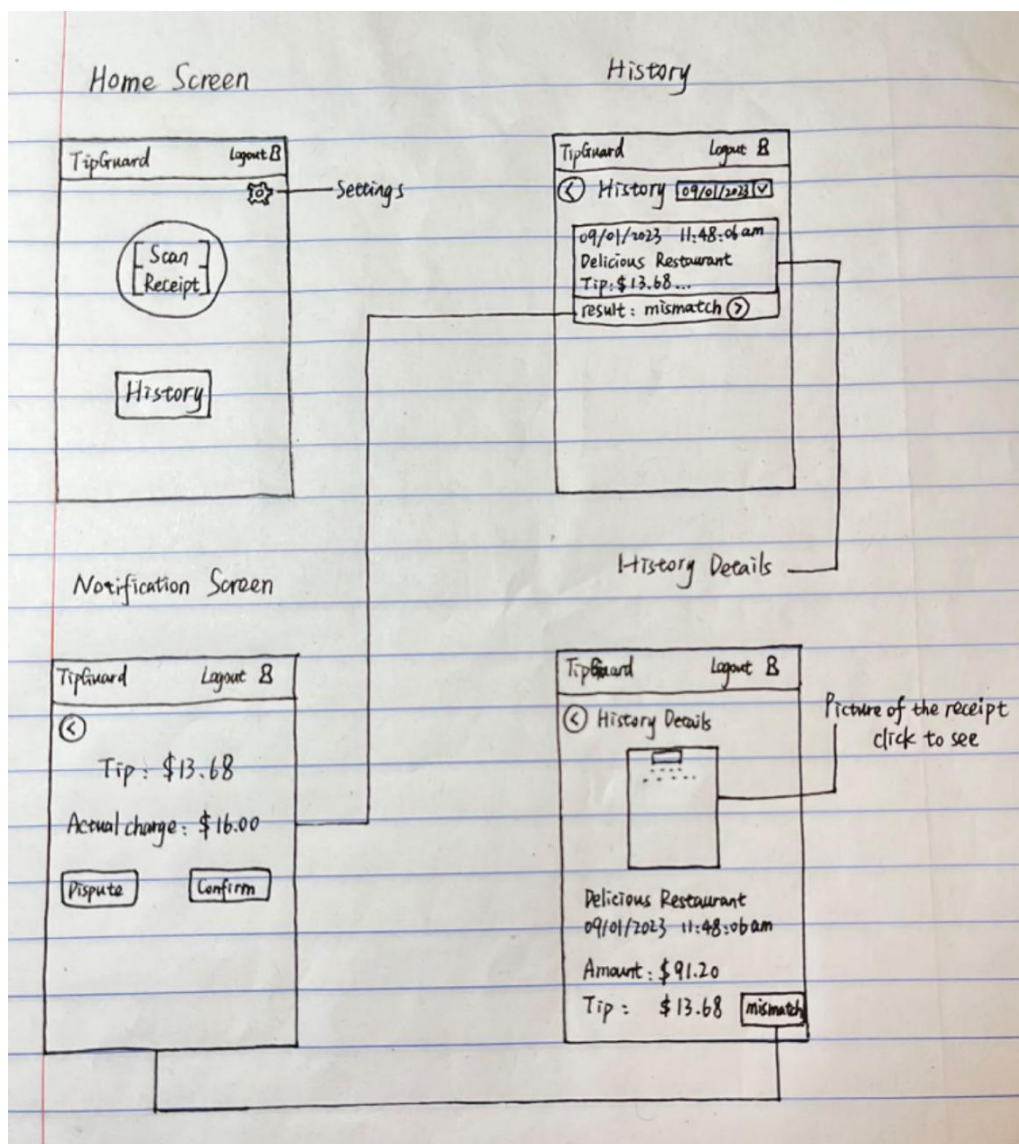 Home Screen
TipGuard Logout
Settings
Scan
Receipt
History
History
TipGuard Logout
< History 09/01/2023
09/01/2023 11:48:06am
Delicious Restaurant
Tip: $13.68...
result: mismatch >
History Details
Notification Screen
TipGuard Logout
<
Tip: $13.68
Actual charge: $16.00
Dispute Confirm
TipGuard Logout
< History Details
Picture of the receipt
click to see
Delicious Restaurant
09/01/2023 11:48:06am
Amount: $91.20
Tip: $13.68 mismatch